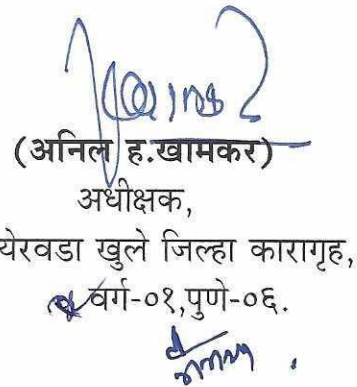 (अनिल ह.खामकर)
अधीक्षक,
येरवडा खुले जिल्हा कारागृह,
वर्ग-०१,पुणे-०६.